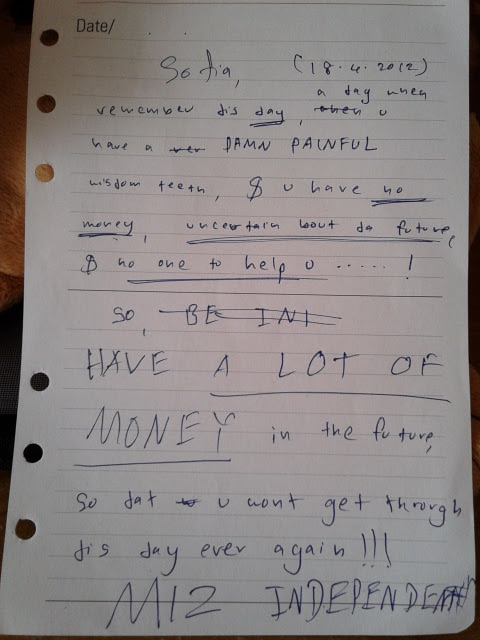 Date/
Sofia, (18.4.2012)
a day when
remember dis day, when u
have a ver DAMN PAINFUL
wisdom teeth, & u have no
money, uncertain bout da future,
& no one to help u ..... !
So, BE INI
HAVE A LOT OF
MONEY in the future,
So dat u wont get through
dis day ever again!!!
MIZ INDEPENDENT